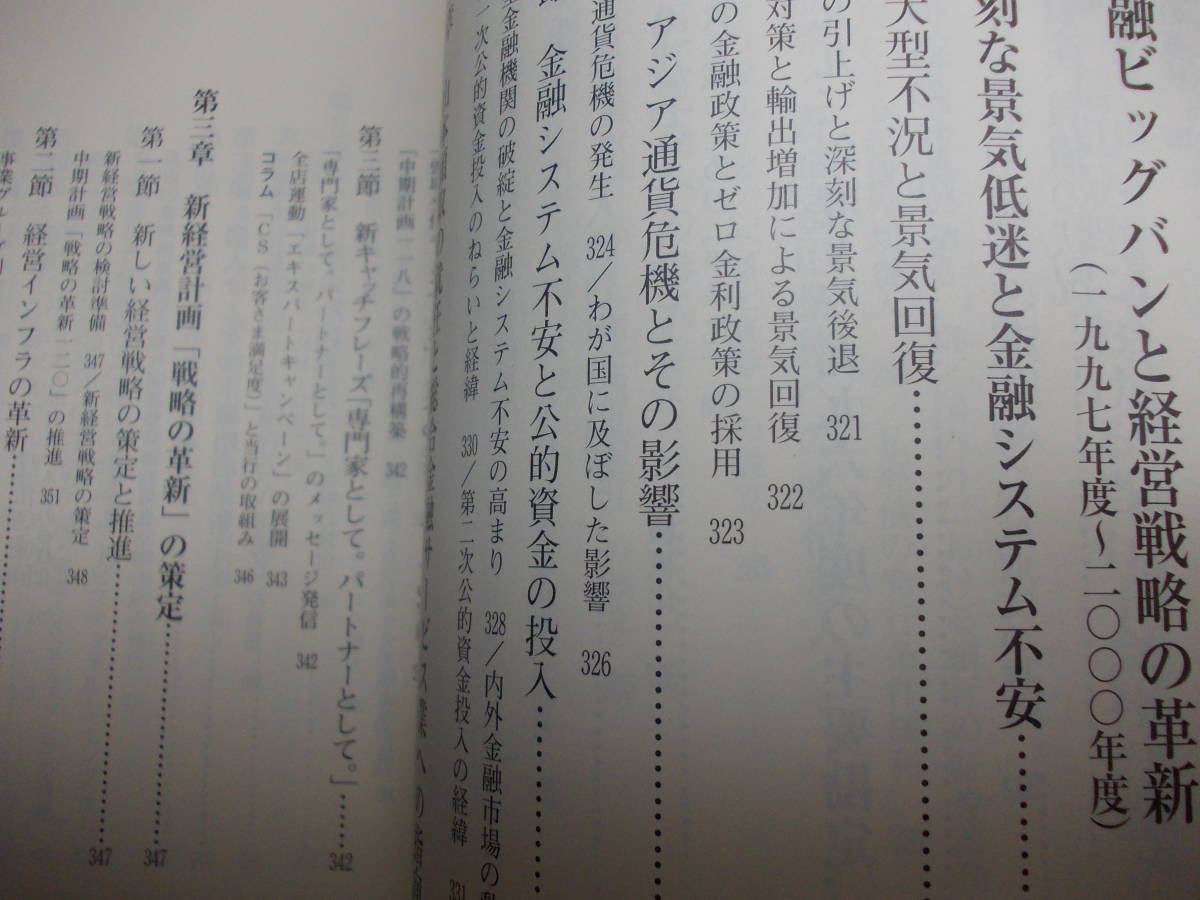 融ビッグバンと経営戦略の革新
(一九九七年度〜二〇〇〇年度)
刻な景気低迷と金融システム不安
大型不況と景気回復
の引上げと深刻な景気後退 321
対策と輸出増加による景気回復 322
の金融政策とゼロ金利政策の採用 323
アジア通貨危機とその影響
通貨危機の発生 324/わが国に及ぼした影響 326
金融システム不安と公的資金の投入
金融機関の破綻と金融システム不安の高まり 328/内外金融市場の
一次公的資金投入のねらいと経緯 330/第二次公的資金投入の経緯 331
「中期計画一一八」の戦略的再構築 342
第三節 新キャッチフレーズ「専門家として。パートナーとして。」 342
「専門家として。パートナーとして。」のメッセージ発信 342
全店運動「エキスパートキャンペーン」の展開 343
コラム「CS(お客さま満足度)」と当行の取組み 346
第三章 新経営計画「戦略の革新」の策定 347
第一節 新しい経営戦略の策定と推進 347
新経営戦略の検討準備 347/新経営戦略の策定 348
中期計画「戦略の革新一二〇」の推進 351
第二節 経営インフラの革新